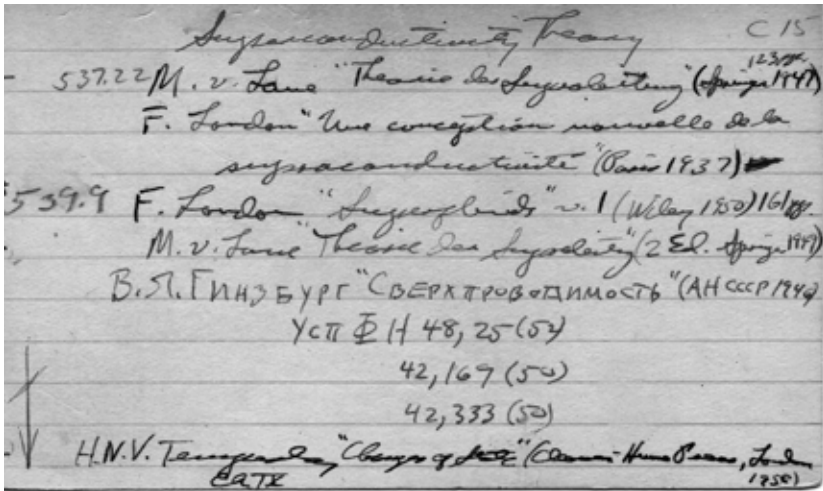 Supraconductivity Theory C 15
123pp.
537.22 M. v. Laue "Theorie der Supraleitung" (Springer 1947)
F. London "Une conception nouvelle de la
supraconductivité" (Paris 1937)
539.9 F. London "Superfluids" v. 1 (Wiley 1950) 161pp.
M. v. Laue "Theorie der Supraleitung" (2 Ed. Springer 1949)
В.Л. Гинзбург "Сверхпроводимость" (АН СССР 1946)
Усп Ф Н 48, 25 (52)
42, 169 (50)
42, 333 (50)
H.N.V. Temperley "Changes of State" (Cleaver-Hume Press, London
Ca IX 1956)